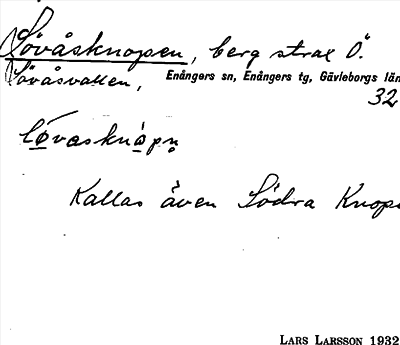 Lövåsknopen, berg strax Ö.
Lövåsvallen, Enångers sn, Enångers tg, Gävleborgs län
32
lø̱vaskno̱pn̥
Kallas även Södra Knope
LARS LARSSON 1932